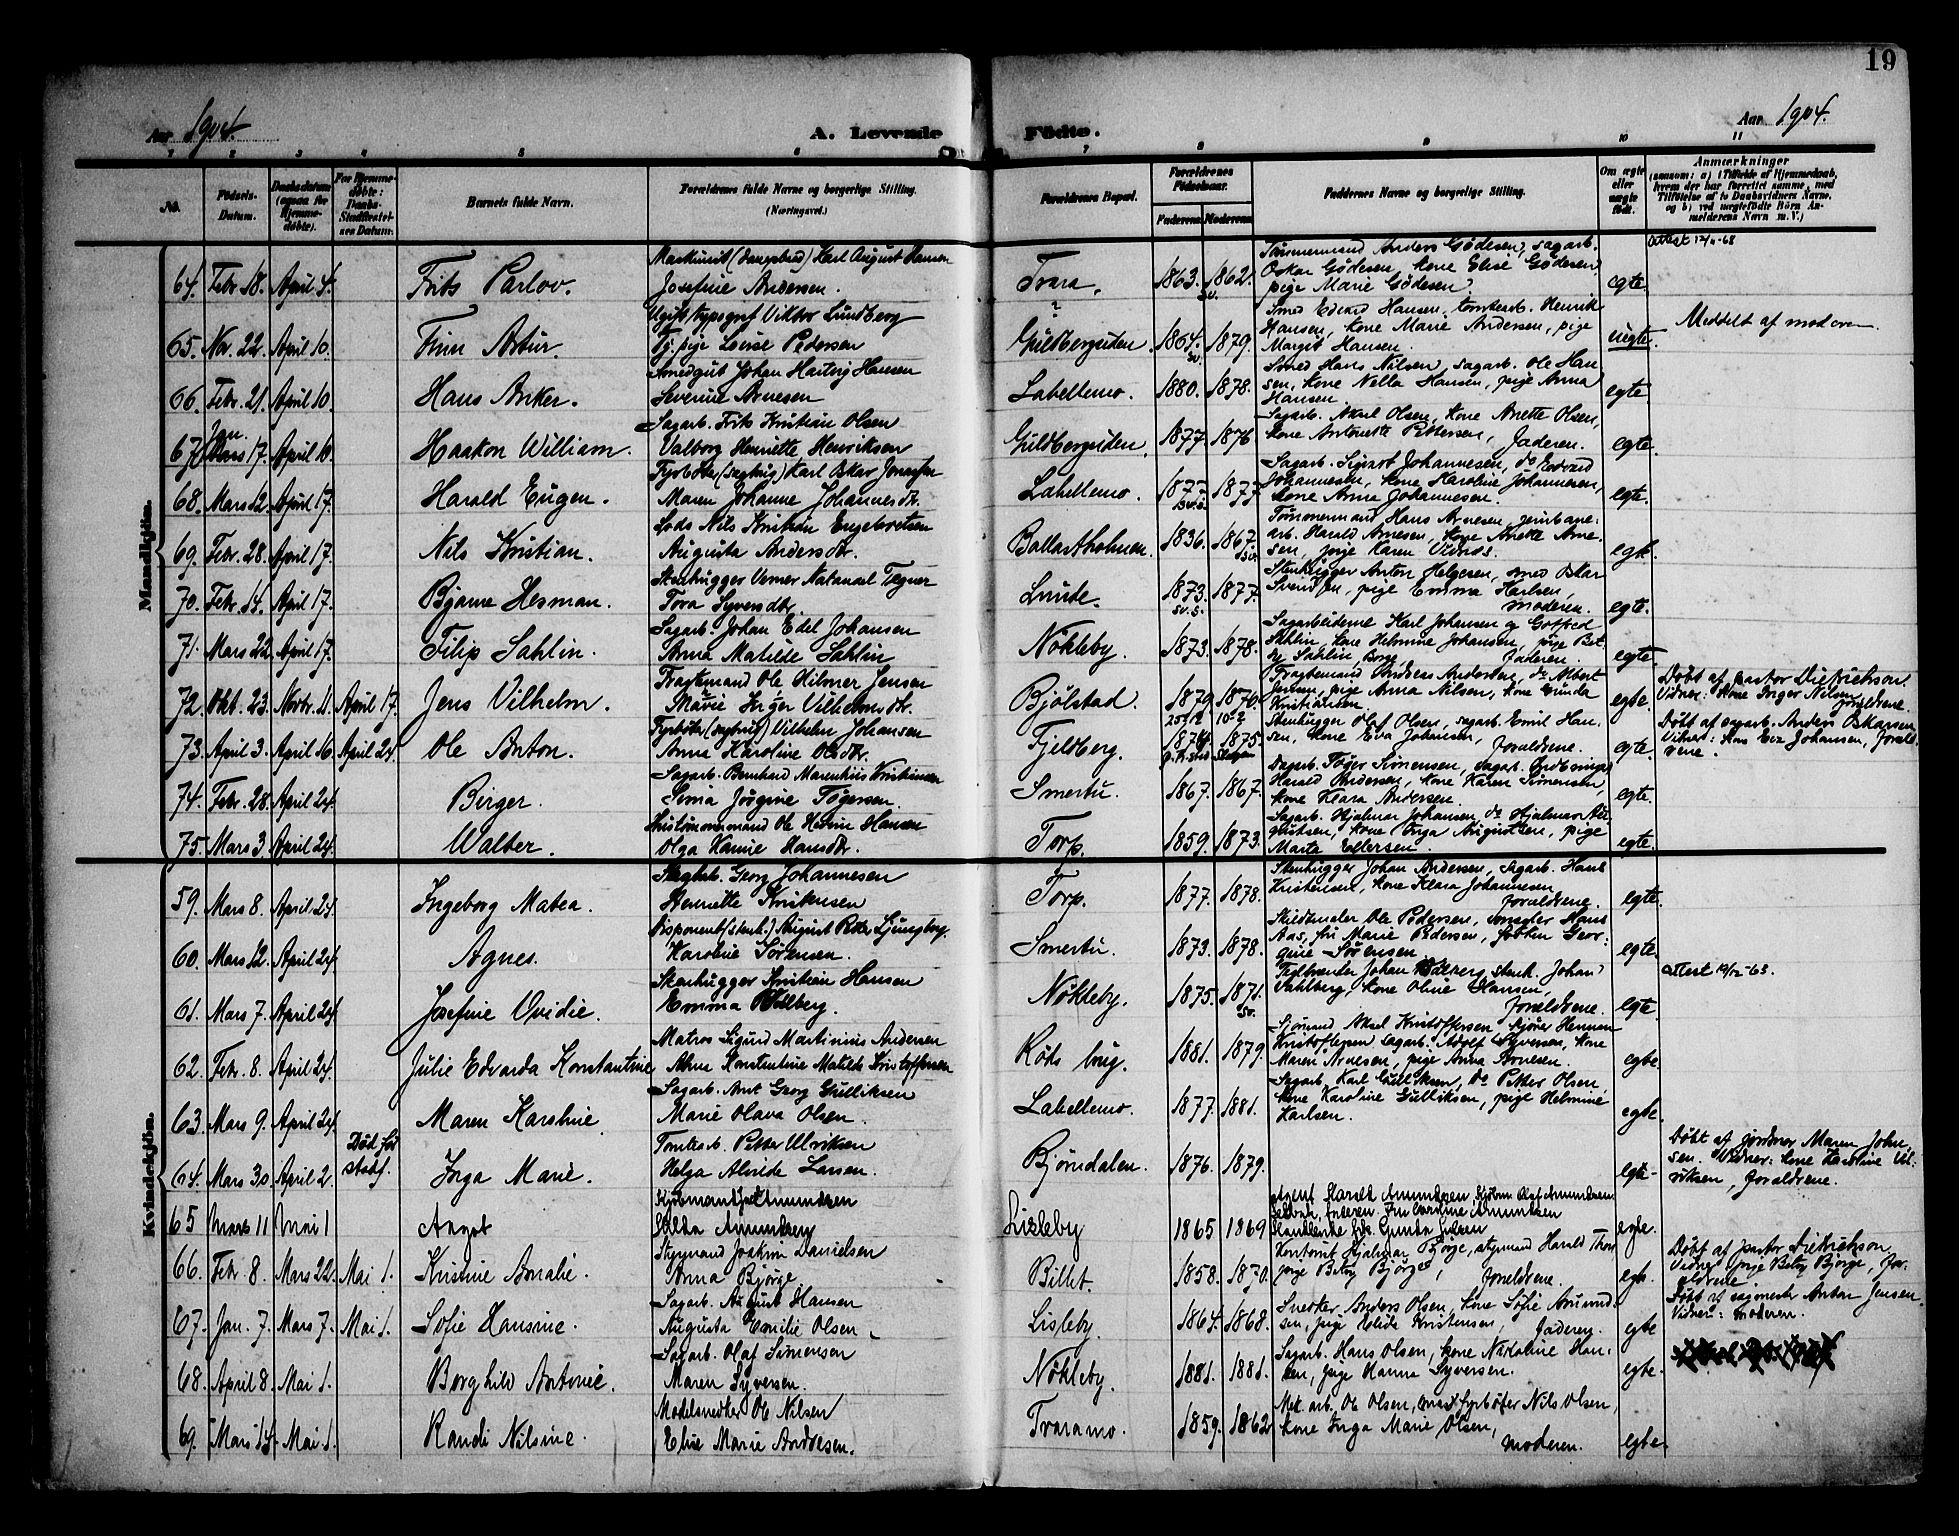 19
Aar 1904.
A. Levende
Fødte.
Aar 1904.
1 2 3 4 5 6 7 8 9 10 11
No.
Fødsels-
Datum.
Daabsdatum
(ogsaa for
Hjemme-
døbte).
For Hjemme-
døbte:
Daabs-
Stadfæstel-
ses Datum.
Barnets fulde Navn.
Forældrenes fulde Navne og borgerlige Stilling.
(Næringsvei.)
Forældrenes Bopæl.
Forældrenes
Fødselsaar.
Faderens. Moderens.
Faddernes Navne og borgerlige Stilling.
Om ægte
eller
uægte
født.
Anmærkninger
(saasom: a) i Tilfælde af Hjemmedaab,
hvem der har forrettet samme, med
Tilføielse af to Daabsvidners Navne,
og b) ved uægtefødte Børn An-
melderens Navn m. V.)
Mandkjøn.
64. Febr. 18. April 4. Frits Parlov.
Karl August Hansen
Josefine Andersen.
Tvara. 1863. 1862.
Tømmermand Anders Gødesen, sagarb.
Oskar Gødesen, kone Elise Gødesen,
pige Marie Gødesen.
egte.
Attest
65. Nov. 22. April 10. Finn Artur.
Ugift typograf Viktor Lundberg
Tj. pige Lovise Pedersen
Guldbergsiden. 1864. 1879.
Smed Edvard Hansen, tomtearb. Henrik
Hansen, kone Marie Andersen, pige
Margit Hansen.
uegte.
Meddelt af moderen
66. Febr. 21. April 10. Hans Anker.
Smedgut Johan Hartvig Hansen
Severine Arnesen
Labellemo. 1880. 1878.
Smed Hans Nilsen, sagarb. Ole Han-
sen, kone Nella Hansen, pige Anna
Hansen.
egte
67. Jan. 17. April 10. Haakon William.
Sagarb. Frits Kristian Olsen
Valborg Henriette Henriksen
Guldbergsiden. 1877. 1876
Sagarb. Aksel Olsen, kone Anette Olsen,
kone Antonette Pettersen, Faderen.
egte.
68. Mars 12. April 17. Harald Eugen.
Karl Oskar
Maren Johanne Johannesdtr.
Labellemo. 1877. 1877.
Sagarb. Sigvart Johannesen, do Edvard
Johannesen, kone Karoline Johannesen,
kone Anna Johannesen.
egte.
69. Febr. 28. April 17. Nils Kristian.
Lods Nils Kristian Engebretsen
Augusta Andersdtr.
Ballastholmen. 1836. 1867.
Tømmermand Hans Arnesen, jernbane-
arb. Harald Arnesen, kone Anette Arne-
sen, pige Karen
egte.
70. Febr. 14. April 17. Bjarne Herman.
Stenhugger Verner Natanael Tegner
Tora Syversdtr.
Lunde. 1873. 1877.
Stenhugger Anton Helgesen, smed Oskar
Svendsen, pige Emma Karlsen,
moderen.
egte.
71. Mars 22. April 17. Filip Sahlin.
Sagarb. Johan Edel Johansen
Anna Matilde Sahlin
Nøkleby. 1873. 1878.
Sagarbeiderne Karl Johansen og Gotfred
Sahlin, kone Helmine Johansen, pige Bet-
zy Sahlin, Faderen.
egte.
72. Okt. 23. Novbr. 21. April 17. Jens Vilhelm.
Fragtemand Ole Hilmer Jensen
Marie Inger Vilhelmsdtr.
Bjølstad. 1879. 1870.
Fragtemand Andreas do Albert
Jensen, pige Anna Nilsen, kone Gunda
Kristiansen.
egte.
Døbt af pastor Dietrichson.
Vidner: kone Inger Nilsen,
forældrene.
73. April 3. April 16. April 24. Ole Anton.
Vilhelm Johansen
Anna Karoline Olsdtr.
Fjeldberg. 1875.
Stenhugger Olaf Olsen, sagarb. Emil Han-
sen, kone Eva Johansen, forældrene.
egte.
Døbt af sagarb. Anders Oskarsen
Vidner: kone Eva Johansen, foræl-
drene.
74. Febr. 28. April 24. Birger.
Sagarb. Bernhard Marenhius Kristiansen
Jørgine Tøgersen.
Smertu. 1867. 1867.
Sagarb. Tøger Simensen, sagarb.
Harald Andersen, kone Karen Simensen,
kone Klara Andersen.
egte.
75. Mars 3. April 24. Walter.
Hustømmermand Ole Hansen
Olga Hanne Hansdtr.
Torp. 1859. 1873.
Sagarb. Hjalmar Johansen, do Hjalmar Au-
gustsen, kone Inga Augustsen, pige
Marta Ellefsen.
egte.
Kvindekjøn.
59. Mars 8. April 24. Ingeborg Matea.
Georg Johannesen
Henriette Kristensen
Torp. 1877. 1878.
Stenhugger Johan Andersen, sagarb. Hans
Kristensen, kone Klara Johannesen
forældrene.
egte.
60. Mars 12. April 24. Agnes.
Disponent August Petter Ljungberg.
Karoline Sørensen.
Smertu. 1873. 1878.
Skiltmaler Ole Pedersen, Hans
Aas, fru Marie Pedersen, frøken Geor-
gine Sørensen.
egte.
61. Mars 7. April 24. Josefine Ovidie.
Stenhugger Kristian Hansen
Emma
Nøkleby. 1875. 1871.
Johan
Dahlberg, kone Oline Hansen,
forældrene.
egte.
Attest
62. Febr. 8. April 24. Julie Edvarda Konstantine
Matros Sigurd Martinius Andersen
Alma Konstentine Matilde Kristoffersen
Røds brug. 1881. 1879.
Sjømand Aksel Kristoffersen, Herman
Kristoffersen, sagarb. Adolf Syversen, kone
Maren Arnesen, pige Anna Arnesen.
egte.
63. Mars 9. April 24. Maren Karstine
Sagarb. Ant. Georg Gulliksen
Marie Olava Olsen.
Labellemo. 1877. 1881.
Sagarb. Karl Gulliksen, do Petter Olsen,
kone Karoline Gulliksen, pige Helmine
Karlsen.
egte.
64. Mars 30. April 2. Død før
stadf. Inga Marie.
Tomtearb. Petter Ulriksen
Helga Alvilde Larsen.
Bjørndalen. 1876. 1879.
egte
Døbt af jordmor Maren John-
sen. Vidner: kone Karoline Ul-
riksen, forældrene.
65 Mars 11 Mai 1 Angot
Kjøbmand Amundsen
Hilda Amundsen
Lisleby 1865 1869
Agent Harald Amundsen, Kjøbm. Olaf Amundsen
egte.
66. Febr. 8. Mars 22. Mai 1. Kristine Amalie.
Styrmand Joakim Danielsen
Anna Bjørge.
Billet. 1858. 1870.
Kontorist Hjalmar Bjørge, styrmand Harald
pige Betzy Bjørge, forældrene.
egte.
Døbt af pastor Dietrichson,
Vidner pige Betzy Bjørge, for-
ældrene
67. Jan. 7. Mars 7. Mai 1. Sofie Hansine.
Sagarb. August Hansen
Augusta Emilie Olsen
Lisleby. 1864. 1868.
Snedker Anders Olsen, kone Sofie Amund-
sen, pige Hilda Kristensen, faderen.
egte
Døbt af Anton Jensen.
Vidner: moderen.
68. April 8. Mai 1. Borghild Antonie.
Sagarb. Olaf Simensen
Maren Syversen.
Nøkleby. 1881. 1881.
Sagarb. Hans Olsen, kone Nikoline Han-
sen, pige Hanna Syversen.
egte.
69. Mars 14. Mai 1. Randi Nilsine.
Modelsnedker Ole Nilsen
Elise Marie Andresen.
Tvaramo. 1859. 1862
Mek. arb. Ole Olsen, fyrbøter Nils Olsen,
kone Inga Marie Olsen,
moderen.
egte.